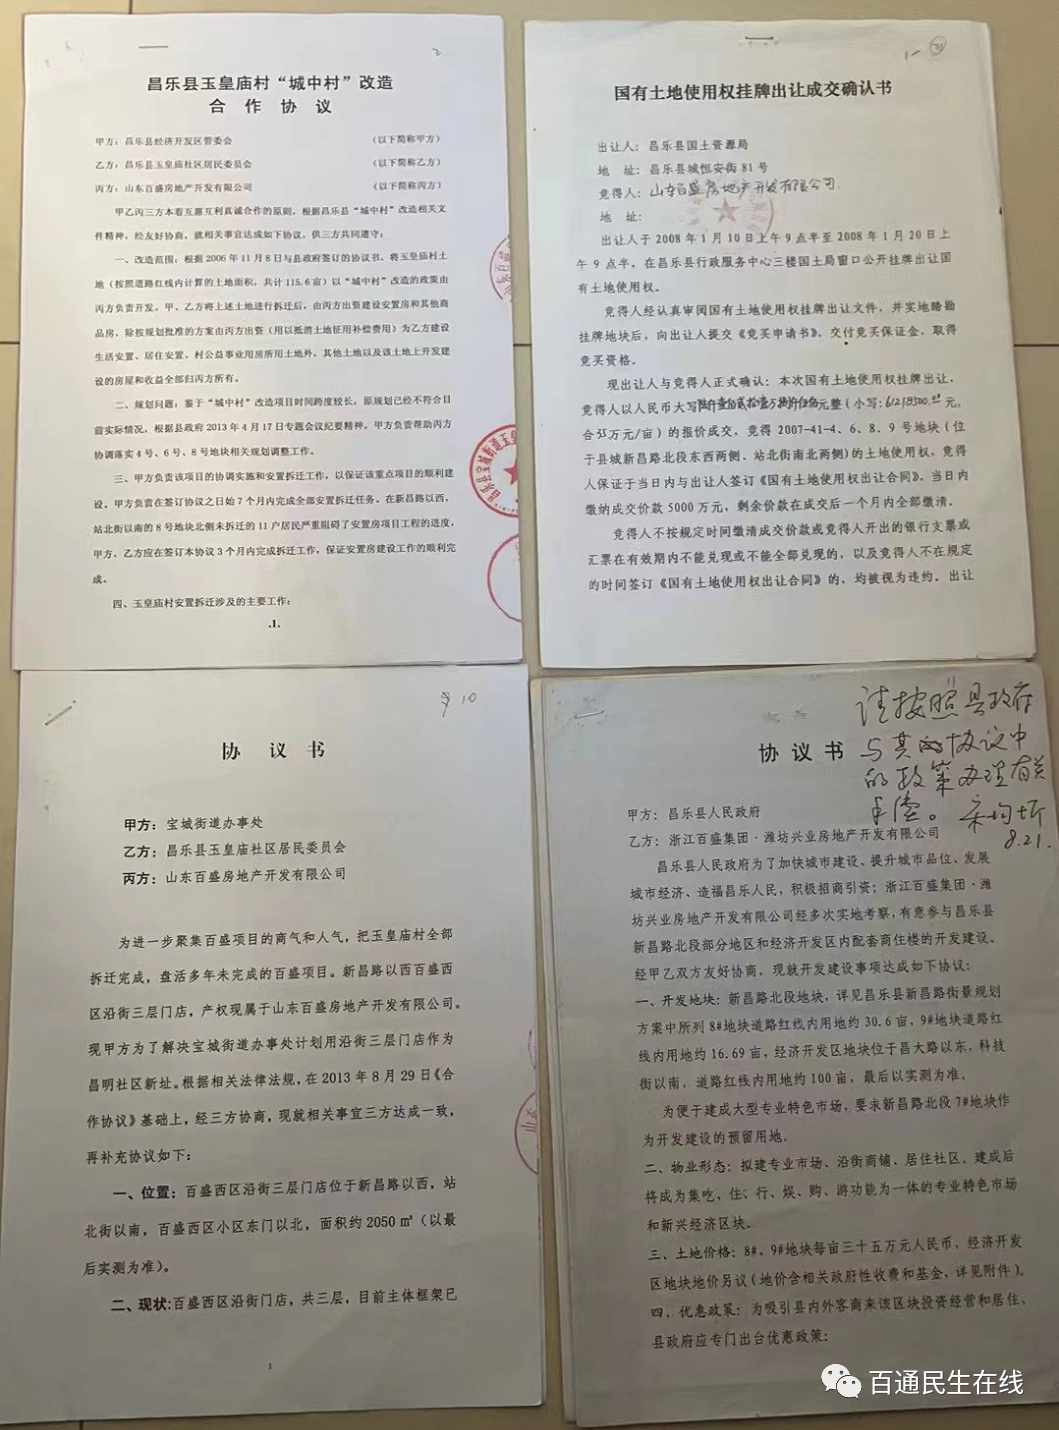 昌乐县玉皇庙村“城中村”改造
合 作 协 议
甲方：昌乐县经济开发区管委会 （以下简称甲方）
乙方：昌乐县玉皇庙社区居民委员会 （以下简称乙方）
丙方：山东百盛房地产开发有限公司 （以下简称丙方）
甲乙丙三方本着互惠互利真诚合作的原则，根据昌乐县“城中村”改造相关文
件精神，经友好协商，就相关事宜达成如下协议，供三方共同遵守：
一、改造范围：根据2006年11月8日与县政府签订的协议书，将玉皇庙村土
地（按照道路红线内计算的土地面积，共计115.6亩）以“城中村”改造的政策由
丙方负责开发。甲、乙方将上述土地进行拆迁后，由丙方出资建设安置房和其他商
品房，除按规划批准的方案由丙方出资（用以抵消土地征用补偿费用）为乙方建设
生活安置、居住安置、村公益事业用房所用土地外，其他土地以及该土地上开发建
设的房屋和收益全部归丙方所有。
二、规划问题：鉴于“城中村”改造项目时间跨度较长，原规划已经不符合目
前实际情况，根据县政府2013年4月17日专题会议纪要精神，甲方负责帮助丙方
协调落实4号、6号、8号地块相关规划调整工作。
三、甲方负责该项目的协调实施和安置拆迁工作，以保证该重点项目的顺利建
设。甲方负责在签订协议之日始7个月内完成全部安置拆迁任务。在新昌路以西，
站北街以南的8号地块北侧未拆迁的11户居民严重阻碍了安置房项目工程的进度，
甲方、乙方应在签订本协议3个月内完成拆迁工作，保证安置房建设工作的顺利完
成。
四、玉皇庙村安置拆迁涉及的主要工作：
.1.
国有土地使用权挂牌出让成交确认书
出让人：昌乐县国土资源局
地 址：昌乐县城恒安街81号
竞得人：山东百盛房地产开发有限公司
地 址：
出让人于2008年1月10日上午9点半至2008年1月20日上
午9点半，在昌乐县行政服务中心三楼国土局窗口公开挂牌出让国
有土地使用权。
竞得人经认真审阅国有土地使用权挂牌出让文件，并实地踏勘
挂牌地块后，向出让人提交《竞买申请书》，交付竞买保证金，取得
竞买资格。
现出让人与竞得人正式确认：本次国有土地使用权挂牌出让，
竞得人以人民币大写 元整（小写：61218300.00元，
合55万元/亩）的报价成交，竞得2007-41-4、6、8、9号地块（位
于县城新昌路北段东西两侧、站北街南北两侧）的土地使用权，竞得
人保证于当日内与出让人签订《国有土地使用权出让合同》。当日内
缴纳成交价款5000万元，剩余价款在成交后一个月内全部缴清。
竞得人不按规定时间缴清成交价款或竞得人开出的银行支票或
汇票在有效期内不能兑现或不能全部兑现的，以及竞得人不在规定
的时间签订《国有土地使用权出让合同》的，均被视为违约。出让
10
协 议 书
甲方：宝城街道办事处
乙方：昌乐县玉皇庙社区居民委员会
丙方：山东百盛房地产开发有限公司
为进一步聚集百盛项目的商气和人气，把玉皇庙村全部
拆迁完成，盘活多年未完成的百盛项目。新昌路以西百盛西
区沿街三层门店，产权现属于山东百盛房地产开发有限公司。
现甲方为了解决宝城街道办事处计划用沿街三层门店作为
昌明社区新址。根据相关法律法规，在2013年8月29日《合
作协议》基础上，经三方协商，现就相关事宜三方达成一致，
再补充协议如下：
一、位置：百盛西区沿街三层门店位于新昌路以西，站
北街以南，百盛西区小区东门以北，面积约2050㎡（以最
后实测为准）。
二、现状：百盛西区沿街门店，共三层，目前主体框架已
1
请按照县政府
与其的协议中
的政策办理有关
手续。
8.21.
协 议 书
甲方：昌乐县人民政府
乙方：浙江百盛集团·潍坊兴业房地产开发有限公司
昌乐县人民政府为了加快城市建设、提升城市品位、发展
城市经济、造福昌乐人民，积极招商引资；浙江百盛集团·潍
坊兴业房地产开发有限公司经多次实地考察，有意参与昌乐县
新昌路北段部分地区和经济开发区内配套商住楼的开发建设。
经甲乙双方友好协商，现就开发建设事项达成如下协议：
一、开发地块：新昌路北段地块，详见昌乐县新昌路街景规划
方案中所列8#地块道路红线内用地约30.6亩，9#地块道路红
线内用地约16.69亩，经济开发区地块位于昌大路以东，科技
街以南，道路红线内用地约100亩，最后以实测为准。
为便于建成大型专业特色市场，要求新昌路北段7#地块作
为开发建设的预留用地。
二、物业形态：拟建专业市场、沿街商铺、居住社区。建成后
将成为集吃、住、行、娱、购、游功能为一体的专业特色市场
和新兴经济区块。
三、土地价格：8#、9#地块每亩三十五万元人民币，经济开发
区地块地价另议（地价含相关政府性收费和基金，详见附件）。
四、优惠政策：为吸引县内外客商来该区块投资经营和居住，
县政府应专门出台优惠政策：
百通民生在线